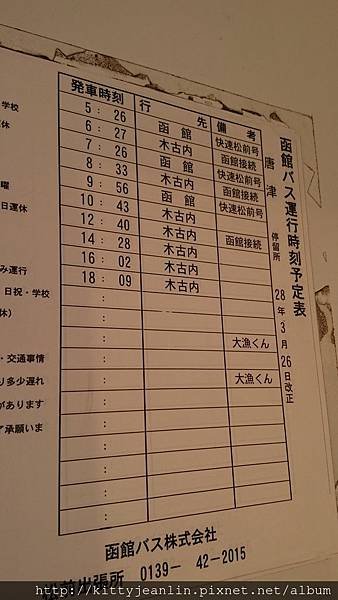 函館バス運行時刻予定表
唐津 停留所
28年3月26日改正
発車時刻 行先 備考
5:26 函館 快速松前号
6:27 木古内 函館接続
7:26 函館 快速松前号
8:33 木古内 函館接続
9:56 函館 快速松前号
10:43 木古内
12:40 木古内 函館接続
14:28 木古内
16:02 木古内
18:09 木古内
:
:
: 大漁くん
:
: 大漁くん
:
:
:
:
:
函館バス株式会社
松前出張所 0139- 42-2015
・学校
運休
曜
日運休
み運行
日祝・学校
休)
・交通事情
り多少遅れ
があります
承願いま
http://kittyjeanlin.pixnet.net/album